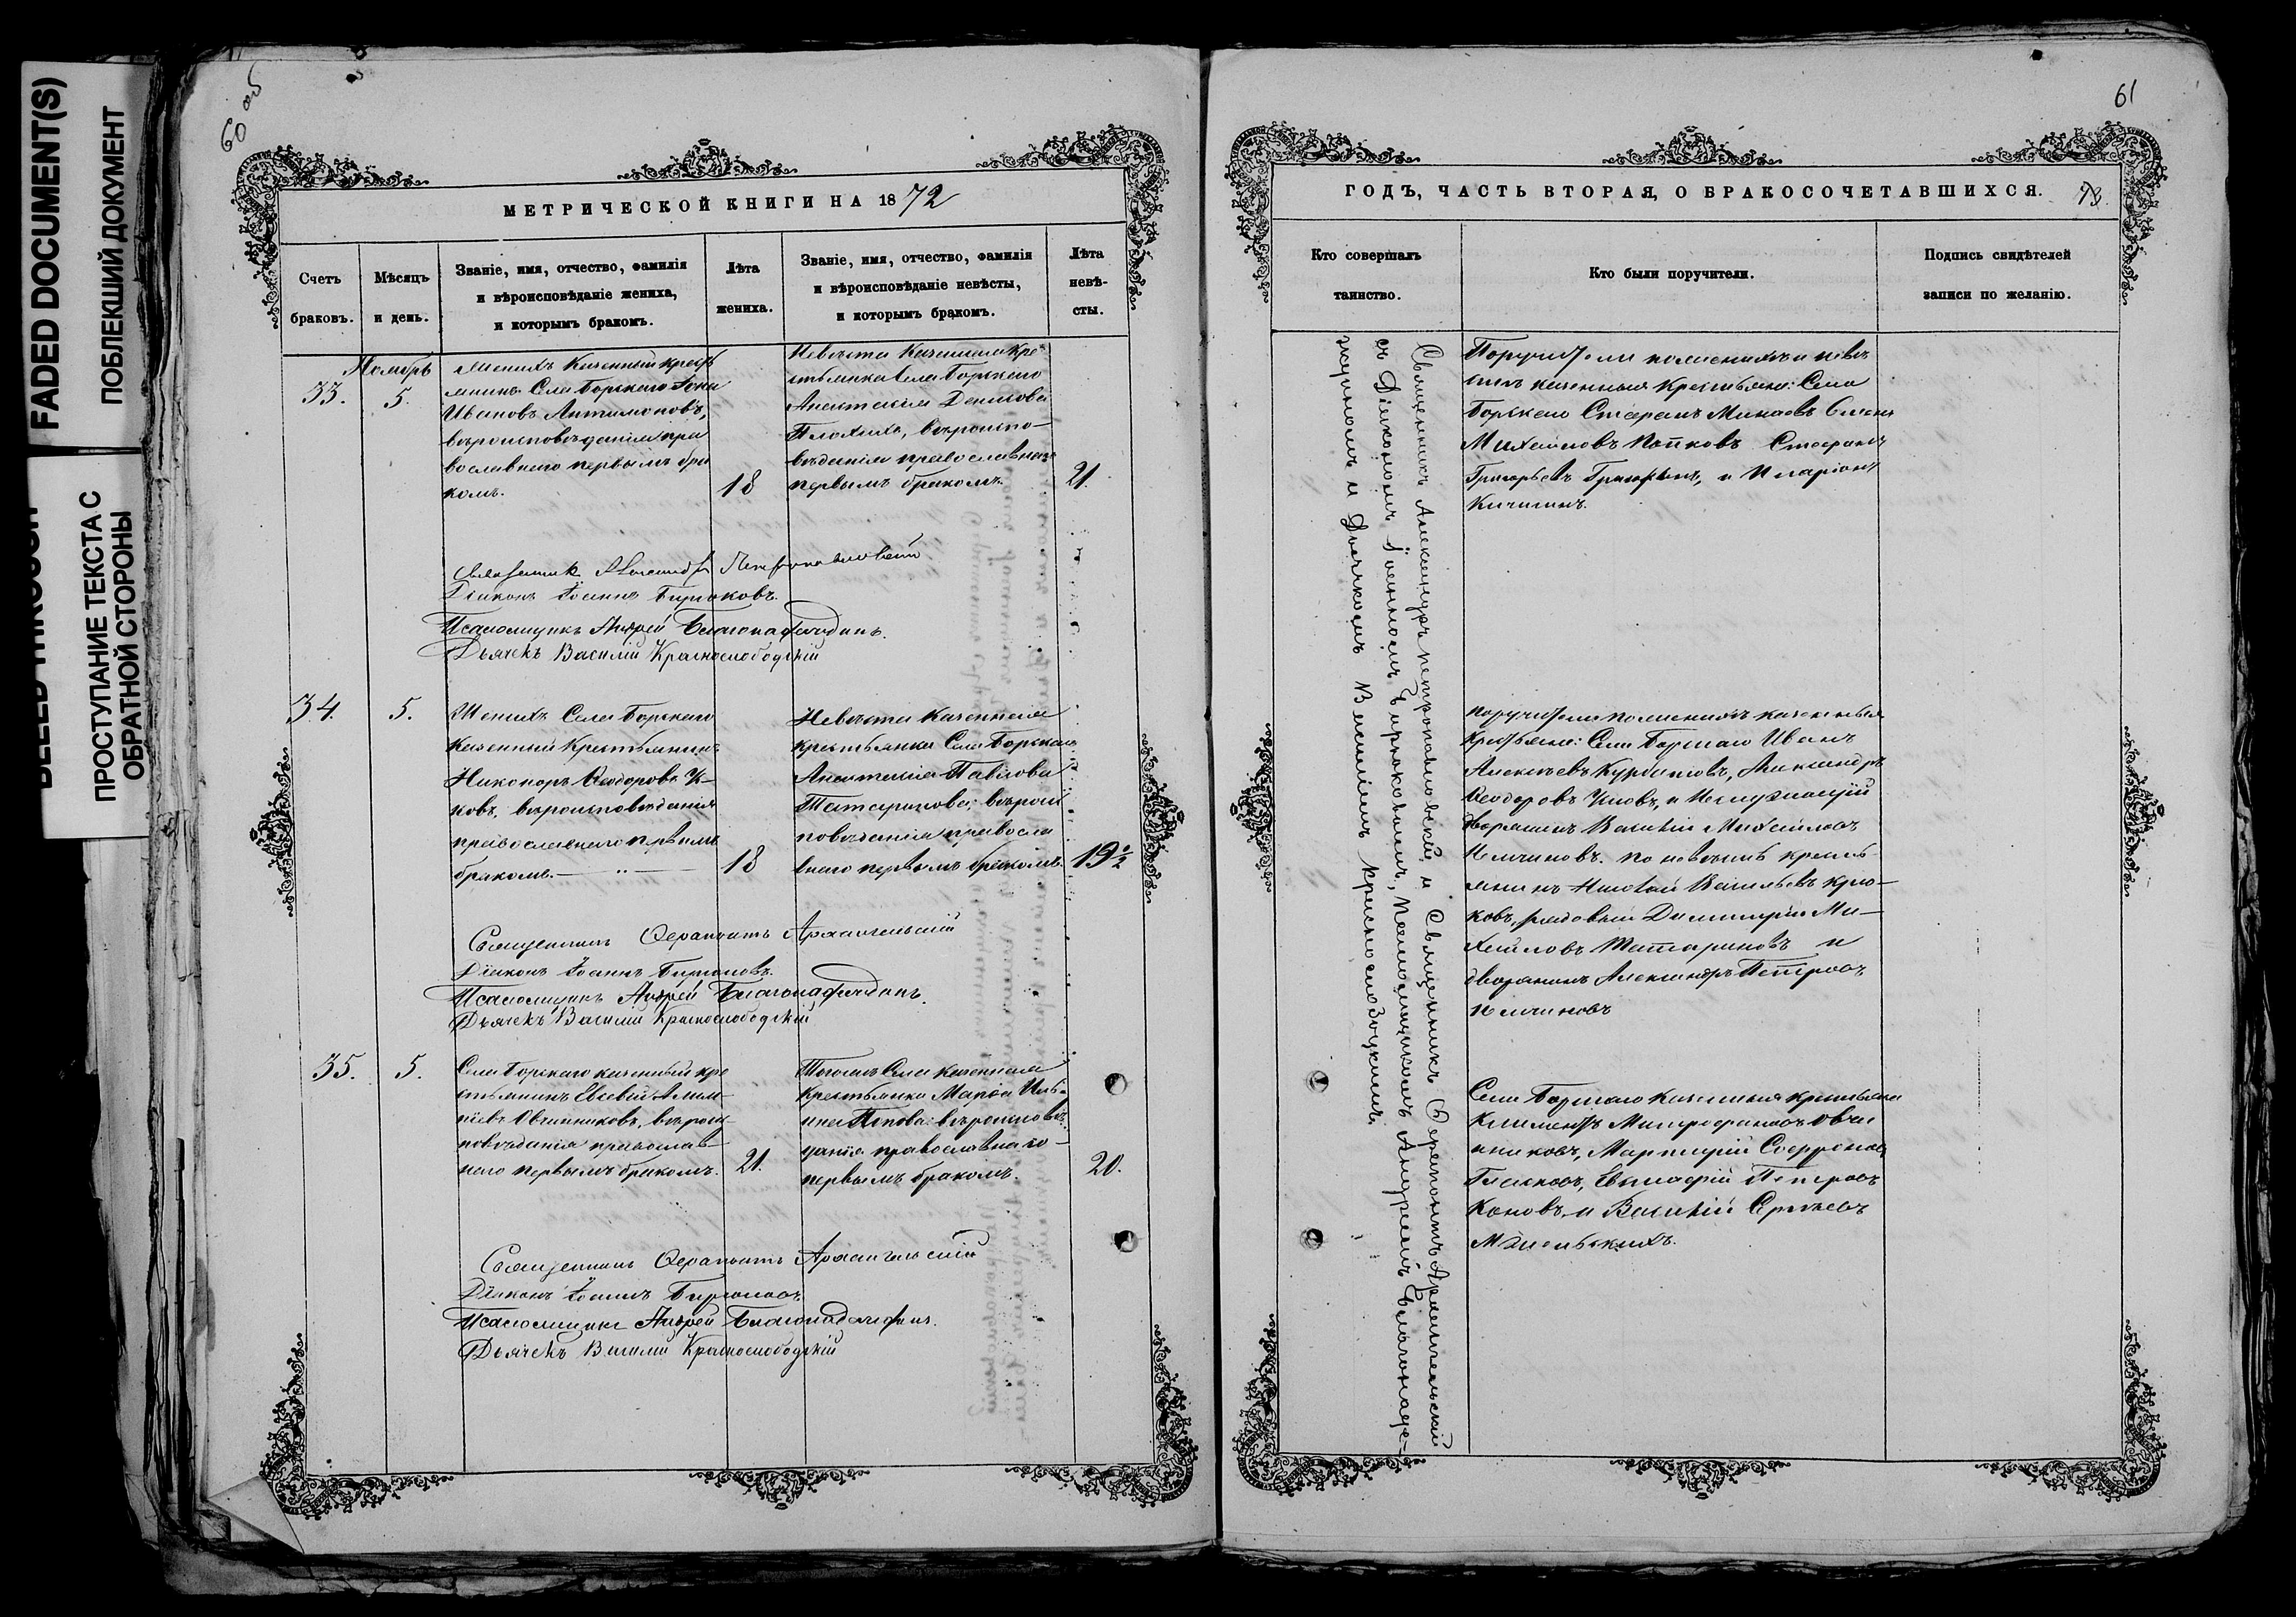 FADED DOCUMENT(S)
ПОБЛЕКШИЙ ДОКУМЕНТ
BLEED THROUGH
ПРОСТУПАНИЕ ТЕКСТА С
ОБРАТНОЙ СТОРОНЫ
60 об
МЕТРИЧЕСКОЙ КНИГИ НА 1872
Счетъ
браковъ.
Мѣсяцъ
и день.
Званіе, имя, отчество, фамилія
и вѣроисповѣданіе жениха,
и которымъ бракомъ.
Лѣта
жениха.
Званіе, имя, отчество, фамилія
и вѣроисповѣданіе невѣсты,
и которымъ бракомъ.
Лѣта
невѣ-
сты.
Ноябрь
33.
5.
Женихъ Казенный кресть
янинъ Села Борскаго
Ивановъ Антимоновъ,
вѣроисповѣданія пра
вославнаго первымъ бра
комъ.
18
Невѣста Казенная Кре-
стьянка села Борскаго
Анастасія Денисова
Плохихъ, вѣроиспо-
вѣданія православнаго
первымъ бракомъ.
21.
Священник Александр Петропавловский
Діаконъ Іоаннъ Бирюковъ.
Псаломщикъ Андрей Благонадеждинъ.
Дьячекъ Василій Краснослободскій
34.
5.
Женихъ Села Борскаго
Казенный Крестьянинъ
Никоноръ Ѳеодоровъ У-
ковъ, вѣроисповѣданія
православнаго первымъ
бракомъ.
18
Невѣста Казенная
крестьянка Села Борскаго
Анастасія Павлова
Татаринова: вѣроис
повѣданія правосла
внаго первымъ бракомъ.
19½
Священникъ Ѳерапонтъ Архангельскій
Діаконъ Іоаннъ Бирюковъ.
Псаломщикъ Андрей Благонадеждинъ.
Дьячекъ Василій Краснослободскій
35.
5.
Села Борскаго казенный кре
стьянинъ Евсевій Алим-
піевъ Овчинниковъ, вѣроис
повѣданія православ-
наго первымъ бракомъ.
21.
Тогожъ Села казенная
Крестьянка Марія Иль-
ина Попова: вѣроисповѣ
данія православнаго
первымъ бракомъ.
20.
Священникъ Ѳерапонтъ Архангельскій
Діаконъ Іоаннъ Бирюковъ.
Псаломщикъ Андрей Благонадеждинъ.
Дьячекъ Василій Краснослободскій
61
ГОДЪ, ЧАСТЬ ВТОРАЯ, О БРАКОСОЧЕТАВШИХСЯ.
Кто совершалъ
таинство.
Кто были поручители.
Подпись свидѣтелей
записи по желанію.
Священникъ Александръ Петропавловскій, и Священникъ Ѳерапонтъ Архангельскій
съ Діакономъ Іоанномъ Бирюковымъ, Псаломщикомъ Андреемъ Благонаде-
ждинымъ и Дьячкомъ Василіемъ Краснослободскимъ.
Поручители по женихѣ и невѣ
стѣ казенныя Крестьяне: Села
Борскаго Стефанъ Минаевъ
Михайловъ Попковъ Стефанъ
Григорьевъ и Иларіонъ
Кичигинъ.
поручители по женихѣ казенныя
Крестьяне: Села Борскаго Иванъ
Алексѣевъ Курбатовъ, Александръ
Ѳеодоровъ и Неслужащій
дворянинъ Василій Михайловъ
по невѣстѣ кресть
янинъ Николай Васильевъ Крю-
ковъ, рядовый Димитрій Ми-
хайловъ Татариновъ и
дворянинъ Александръ Петровъ
Села Борскаго Казенныя крестьяне
Климентъ Митрофановъ Овчи
нниковъ, Мартирій Софроновъ
Евстафій Петровъ
Коновъ и Василій Сергѣевъ